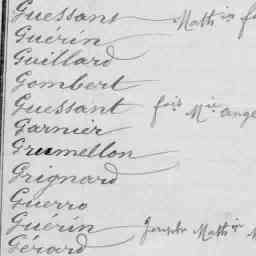 Guessant Math in f
Guérin
Guillard
Gombert
Guessant fois Mie ange
Garnier
Grumellon
Grignard
Guerro
Guérin Joseph Math in M
Gérard